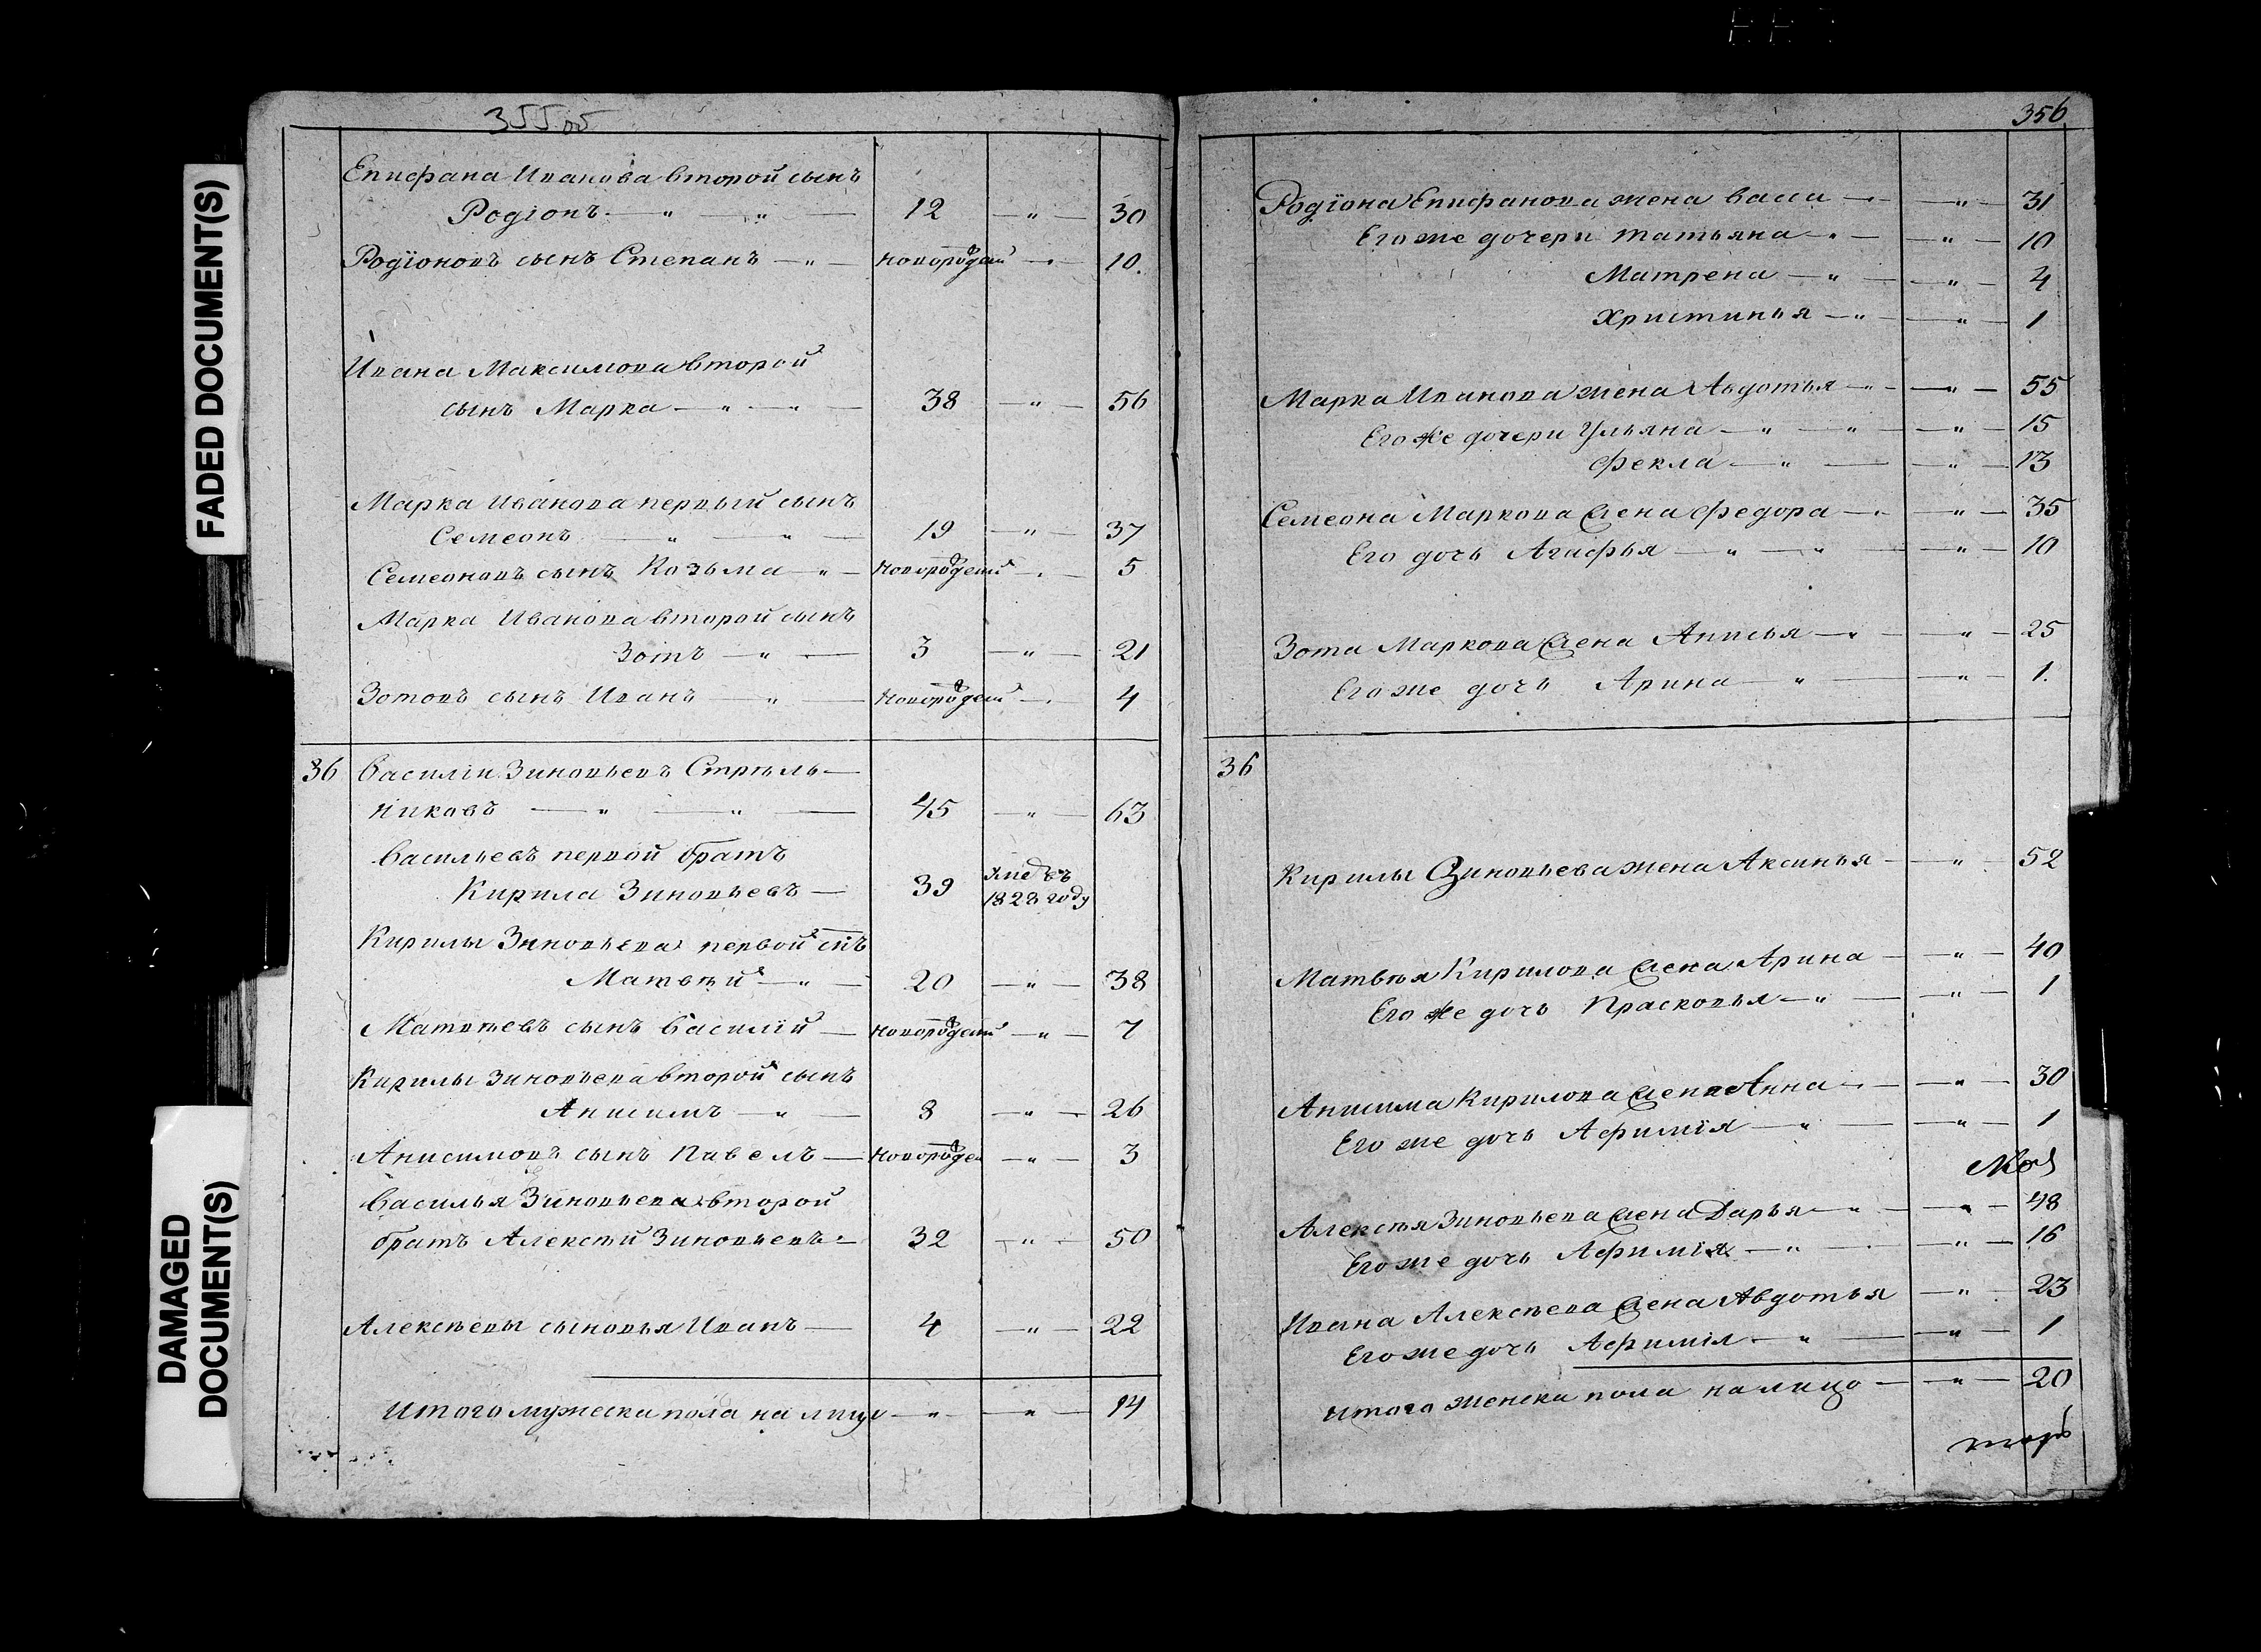 FADED DOCUMENT(S)
DAMAGED
DOCUMENT(S)
355 об
Епифана Иванова второй сынъ
Родіонъ — " — " — 12 — " — 30
Родіоновъ сынъ Степанъ — " — новорожден — " — 10.
Ивана Максимова второй
сынъ Марка — " — " — 38 — " — 56
Марка Иванова первый сынъ
Семеонъ — " — " — 19 — " — 37
Семеоновъ сынъ Козьма — " — новорожден — " — 5
Марка Иванова второй сынъ
Зотъ — " — 3 — " — 21
Зотовъ сынъ Иванъ — " — новорожден — " — 4
36 Василій Зиновьевъ Стрѣль—
никовъ — " — " — 45 — " — 63
Васильевъ первой братъ
Кирила Зиновьевъ — 39 умре въ 1828 году
Кирилы Зиновьева первой снъ
Матвѣй — " — 20 — " — 38
Матвѣевъ сынъ Василій — новорожден — " — 7
Кирилы Зиновьева второй сынъ
Анисимъ — " — 8 — " — 26
Анисимовъ сынъ Павелъ — новорожден — " — 3
Василья Зиновьева второй
братъ Алексѣй Зиновьевъ — 32 — " — 50
Алексѣевы сыновья Иванъ — 4 — " — 22
Итого мужеска пола на лицо — " — " — 14
356
Родіона Епифанова жена Васса — " — 31
Его же дочери Татьяна — " — " — 10
Матрена — " — " — 4
Христинья — " — " — 1
Марка Иванова жена Авдотья — " — " — 55
Его же дочери Ульяна — " — " — " — 15
Фекла — " — " — 13
Семеона Маркова жена Федора — " — " — 35
Его дочь Агафья — " — " — " — 10
Зота Маркова жена Анисья — " — " — 25
Его же дочь Арина — " — " — 1.
36
Кирилы Зиновьева жена Аксинья — " — 52
Матвѣя Кирилова жена Арина — " — 40
Его же дочь Прасковья — " — " — 1
Анисима Кирилова жена Анна — " — 30
Его же дочь Афимія — " — " — 1
Алексѣя Зиновьева жена Дарья — " — " — 48
Его же дочь Афимія — " — " — 16
Ивана Алексѣева жена Авдотья — " — 23
Его же дочь Афимія — " — " — 1
Итого женска пола на лицо — " — 20